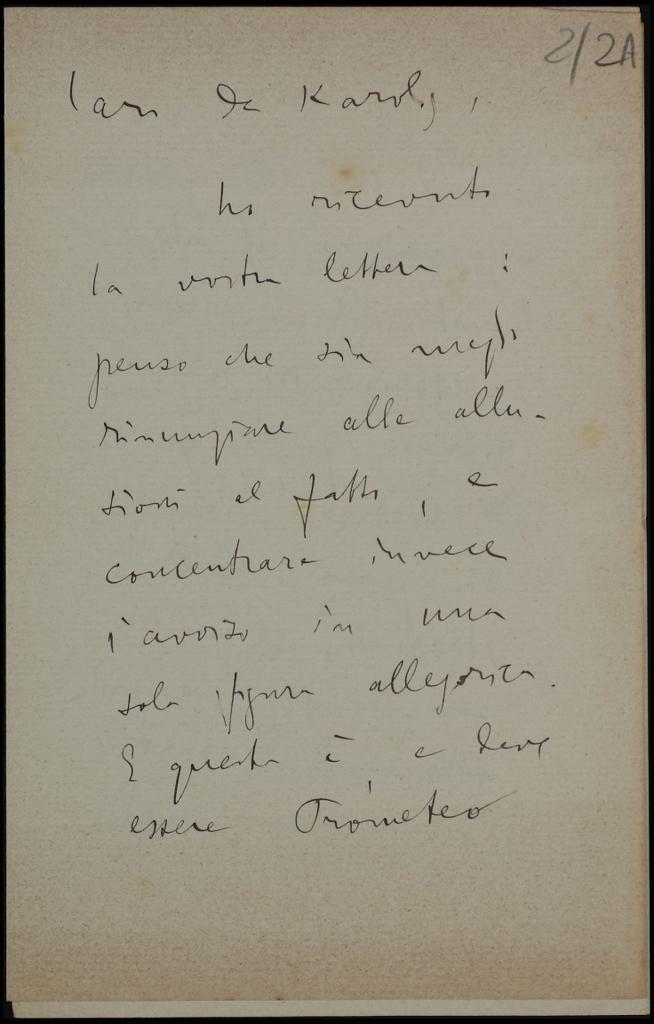 2/2A
Caro De Karolis,
ho ricevuto
la vostra lettera :
penso che sia meglio
rinunziare alle allu-
sioni al fatto, e
concentrare invece
l'avviso in una
sola figura allegorica.
E questa è, e deve
essere Prometeo